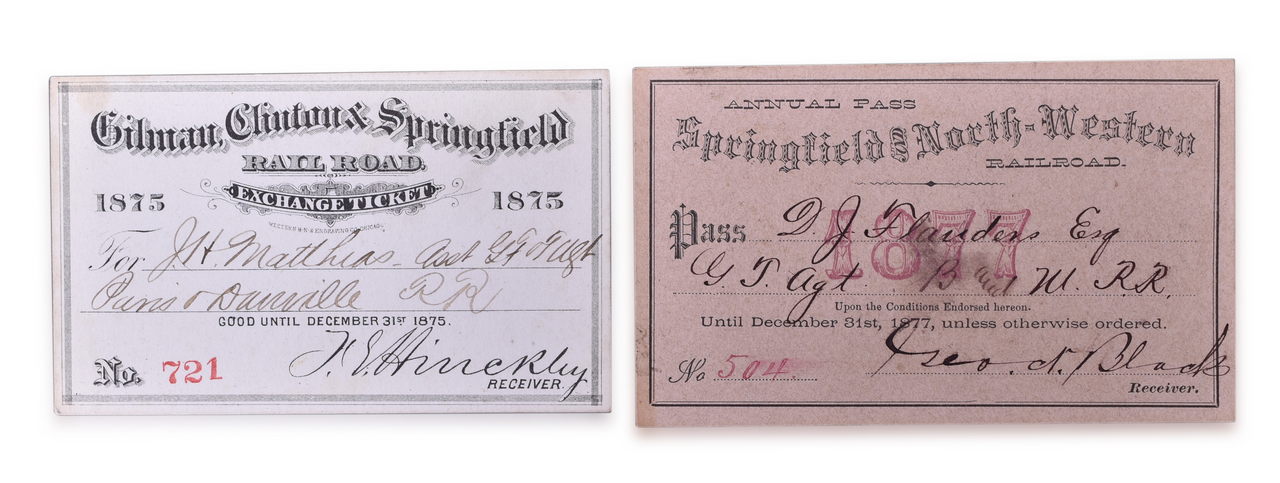 Gilman, Clinton & Springfield
RAIL ROAD.
1875 EXCHANGE TICKET 1875
WESTERN B.N. & ENGRAVING CO. CHICAGO
For J. H. Matthias - Asst G F & T Agt
Paris & Danville RR
GOOD UNTIL DECEMBER 31ST 1875.
F. E. Hinckley
No. 721 RECEIVER.
ANNUAL PASS
Springfield and North-Western
RAILROAD.
1877
Pass D J Flanders Esq
G. T. Agt B and M. R.R.
Upon the Conditions Endorsed hereon.
Until December 31st, 1877, unless otherwise ordered.
No 504 Geo. N. Black
Receiver.